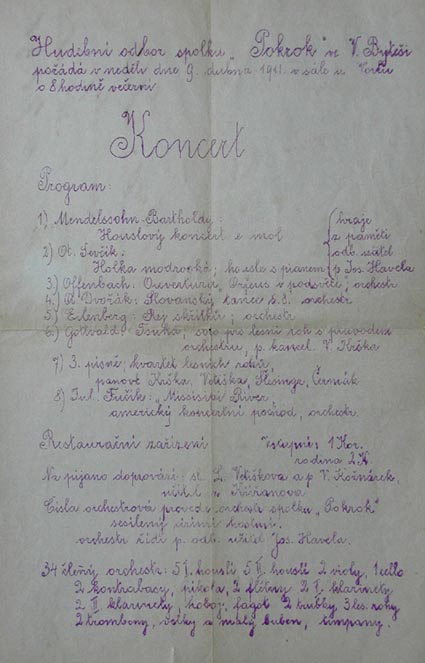 Hudební odbor spolku „Pokrok" ve V. Byteši
pořádá v neděli dne 9. dubna 1911 v sále u
o 8 hodině večerní
Koncert
Program:
1) Mendelssohn-Bartholdy: hraje
Houslový koncert e mol z paměti
2) Ot. Ševčík: odb. učitel
Holka modrooká; housle s pianem p. Jos. Havela
3) Offenbach: Ouvertura, Orfeus v podsvětí; orchestr
4) A. Dvořák: Slovanský tanec č. 8. orchestr
5) Eilenberg: Rej skřítků; orchestr
6) Gottwald: solo pro lesní roh s průvodem
orchestru, p. kancel. V. Krška
7) 3. písně; kvartet lesních rohů,
panové Krška, Vetiška, Čermák
8) Jul. Fučík: „Mississipi River,
americký koncertní pochod, orchestr.
Restaurační zařízení Vstupné: 1 Kor.
rodina 2 K.
Na pijano doprovází: sl. L. Vetišková a p. V.
učitel
Čísla orchestrová provede orchestr spolku „Pokrok"
sesílený
orchestr řídí p. odb. učitel Jos. Havela.
34 členný orchestr: 5 I. houslí 5 II. houslí 2 violy, 1 cello
2 kontrabasy, pikola, 2 flétny 2 I. klarinety
2 II klarinety, hoboj, fagot 2 trubky, 3 les. rohy
2 trombony, velký a malý buben, tympany.